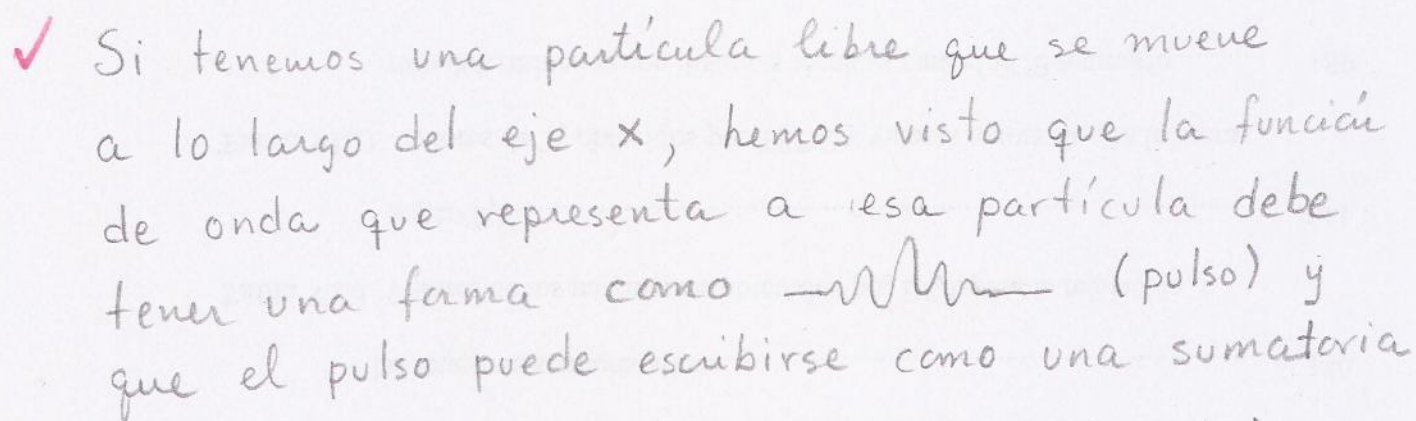 ✓ Si tenemos una partícula libre que se mueve
a lo largo del eje x, hemos visto que la función
de onda que representa a esa partícula debe
tener una forma como (pulso) y
que el pulso puede escribirse como una sumatoria